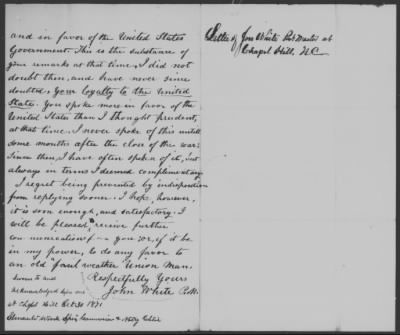 and in favor of the United States
Government. This is the substance of
your remarks at that time, I did not
doubt then, and have never since
doubted, your loyalty to the United
States. You spoke more in favor of the
United States than I thought prudent,
at that time. I never spoke of this untill
some months after the close of the war:
Since then, I have often spoken of it, but
always in terms I deemed complementary
I regret being prevented by indisposition
from replying sooner. I hope, however,
it is soon enough, and satisfactory. I
will be pleased, receive further
communication from you or, if it be
in my power, to do any favor to
an old "foul weather Union Man.
Respectfully Yours
John White P.M.
Sworn to and
acknowledged before me
at Chpl Hill Oct 30 1871
Letter of Jno White Post Master at
Chapel Hill N.C